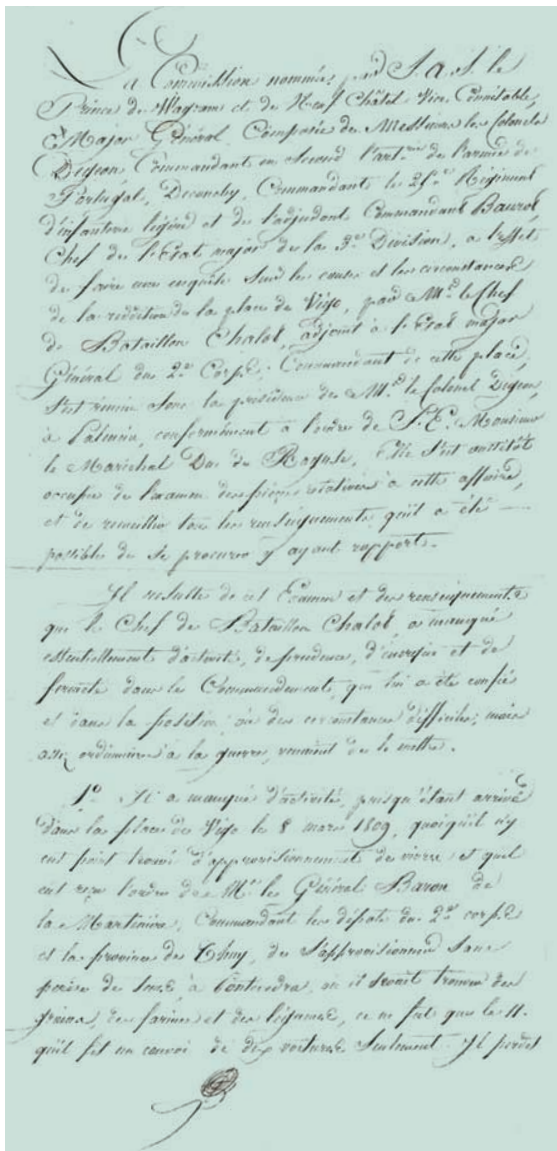 La Commission nommée par S. A. S. le
Prince de Wagram et de Neuf Châtel Vice Connétable,
Major Général, Composée de Messieurs les Colonels
Digeon Commandant en Second l'art.rie de l'armée de
Portugal, Deconchy, Commandant le 25e Régiment
d'infanterie légère et de l'adjudant Commandant Baurot
Chef de l'Etat major de la 3e Division, a l'effet
de faire une enquête Sur les causes et les circonstances
de la reddition de la place de Vigo, par Mr. le Chef
de Bataillon Chalot, adjoint à l'Etat major
Général du 2e Corps, Commandant de cette place,
s'est réunie sous la présidence de Mr. le Colonel Digeon,
à conformément à l'ordre de S. E. Monsieur
le Maréchal Duc de Raguse. Elle s'est aussitôt
occupée de l'examen des pièces relatives à cette affaire,
et de recueillir tous les renseignements qu'il a été
possibles de se procurer y ayant rapport.
Il résulte de cet Examen et des renseignements
que le Chef de Bataillon Chalot a manqué
essentiellement d'activité, de prudence, d'énergie et de
fermeté dans le Commandement qui lui a été confié
et dans la position où des circonstances difficiles, mais
assez ordinaires à la guerre, venaient de le mettre.
1o. Il a manqué d'activité, puisqu'étant arrivé
dans la place de Vigo le 8 mars 1809, quoiqu'il n'y
eut point trouvé d'approvisionnement de vivres et qu'il
eut reçu l'ordre de Mr. le Général Baron de
la Martinière, Commandant les dépôts du 2e corps
et la province de Thuy, de s'approvisionner sans
perdre de tems à Pontevedra, où il devait trouver des
grains, des farines et des légumes, ce ne fut que le 11.
qu'il fit un convoi de dix voitures Seulement. Il perdit